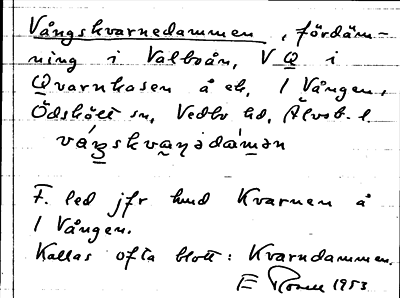 Vångskvarnedammen, fördäm-
ning i Valboån, V Q i
Qvarnkasen å ek, 1 Vången,
Ödskölt sn, Vedbo hd, Älvsb. l.
F. led jfr hmd Kvarnen å
1 Vången.
Kallas ofta blott: Kvarndammen.
E 1953